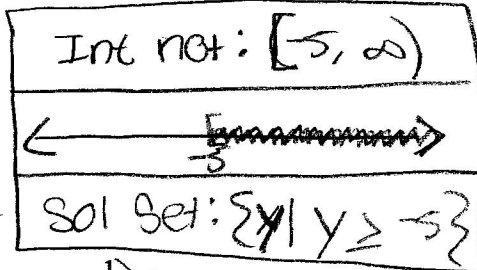 Int not: [-5, ∞)
-5
Sol Set: {y| y ≥ -5}